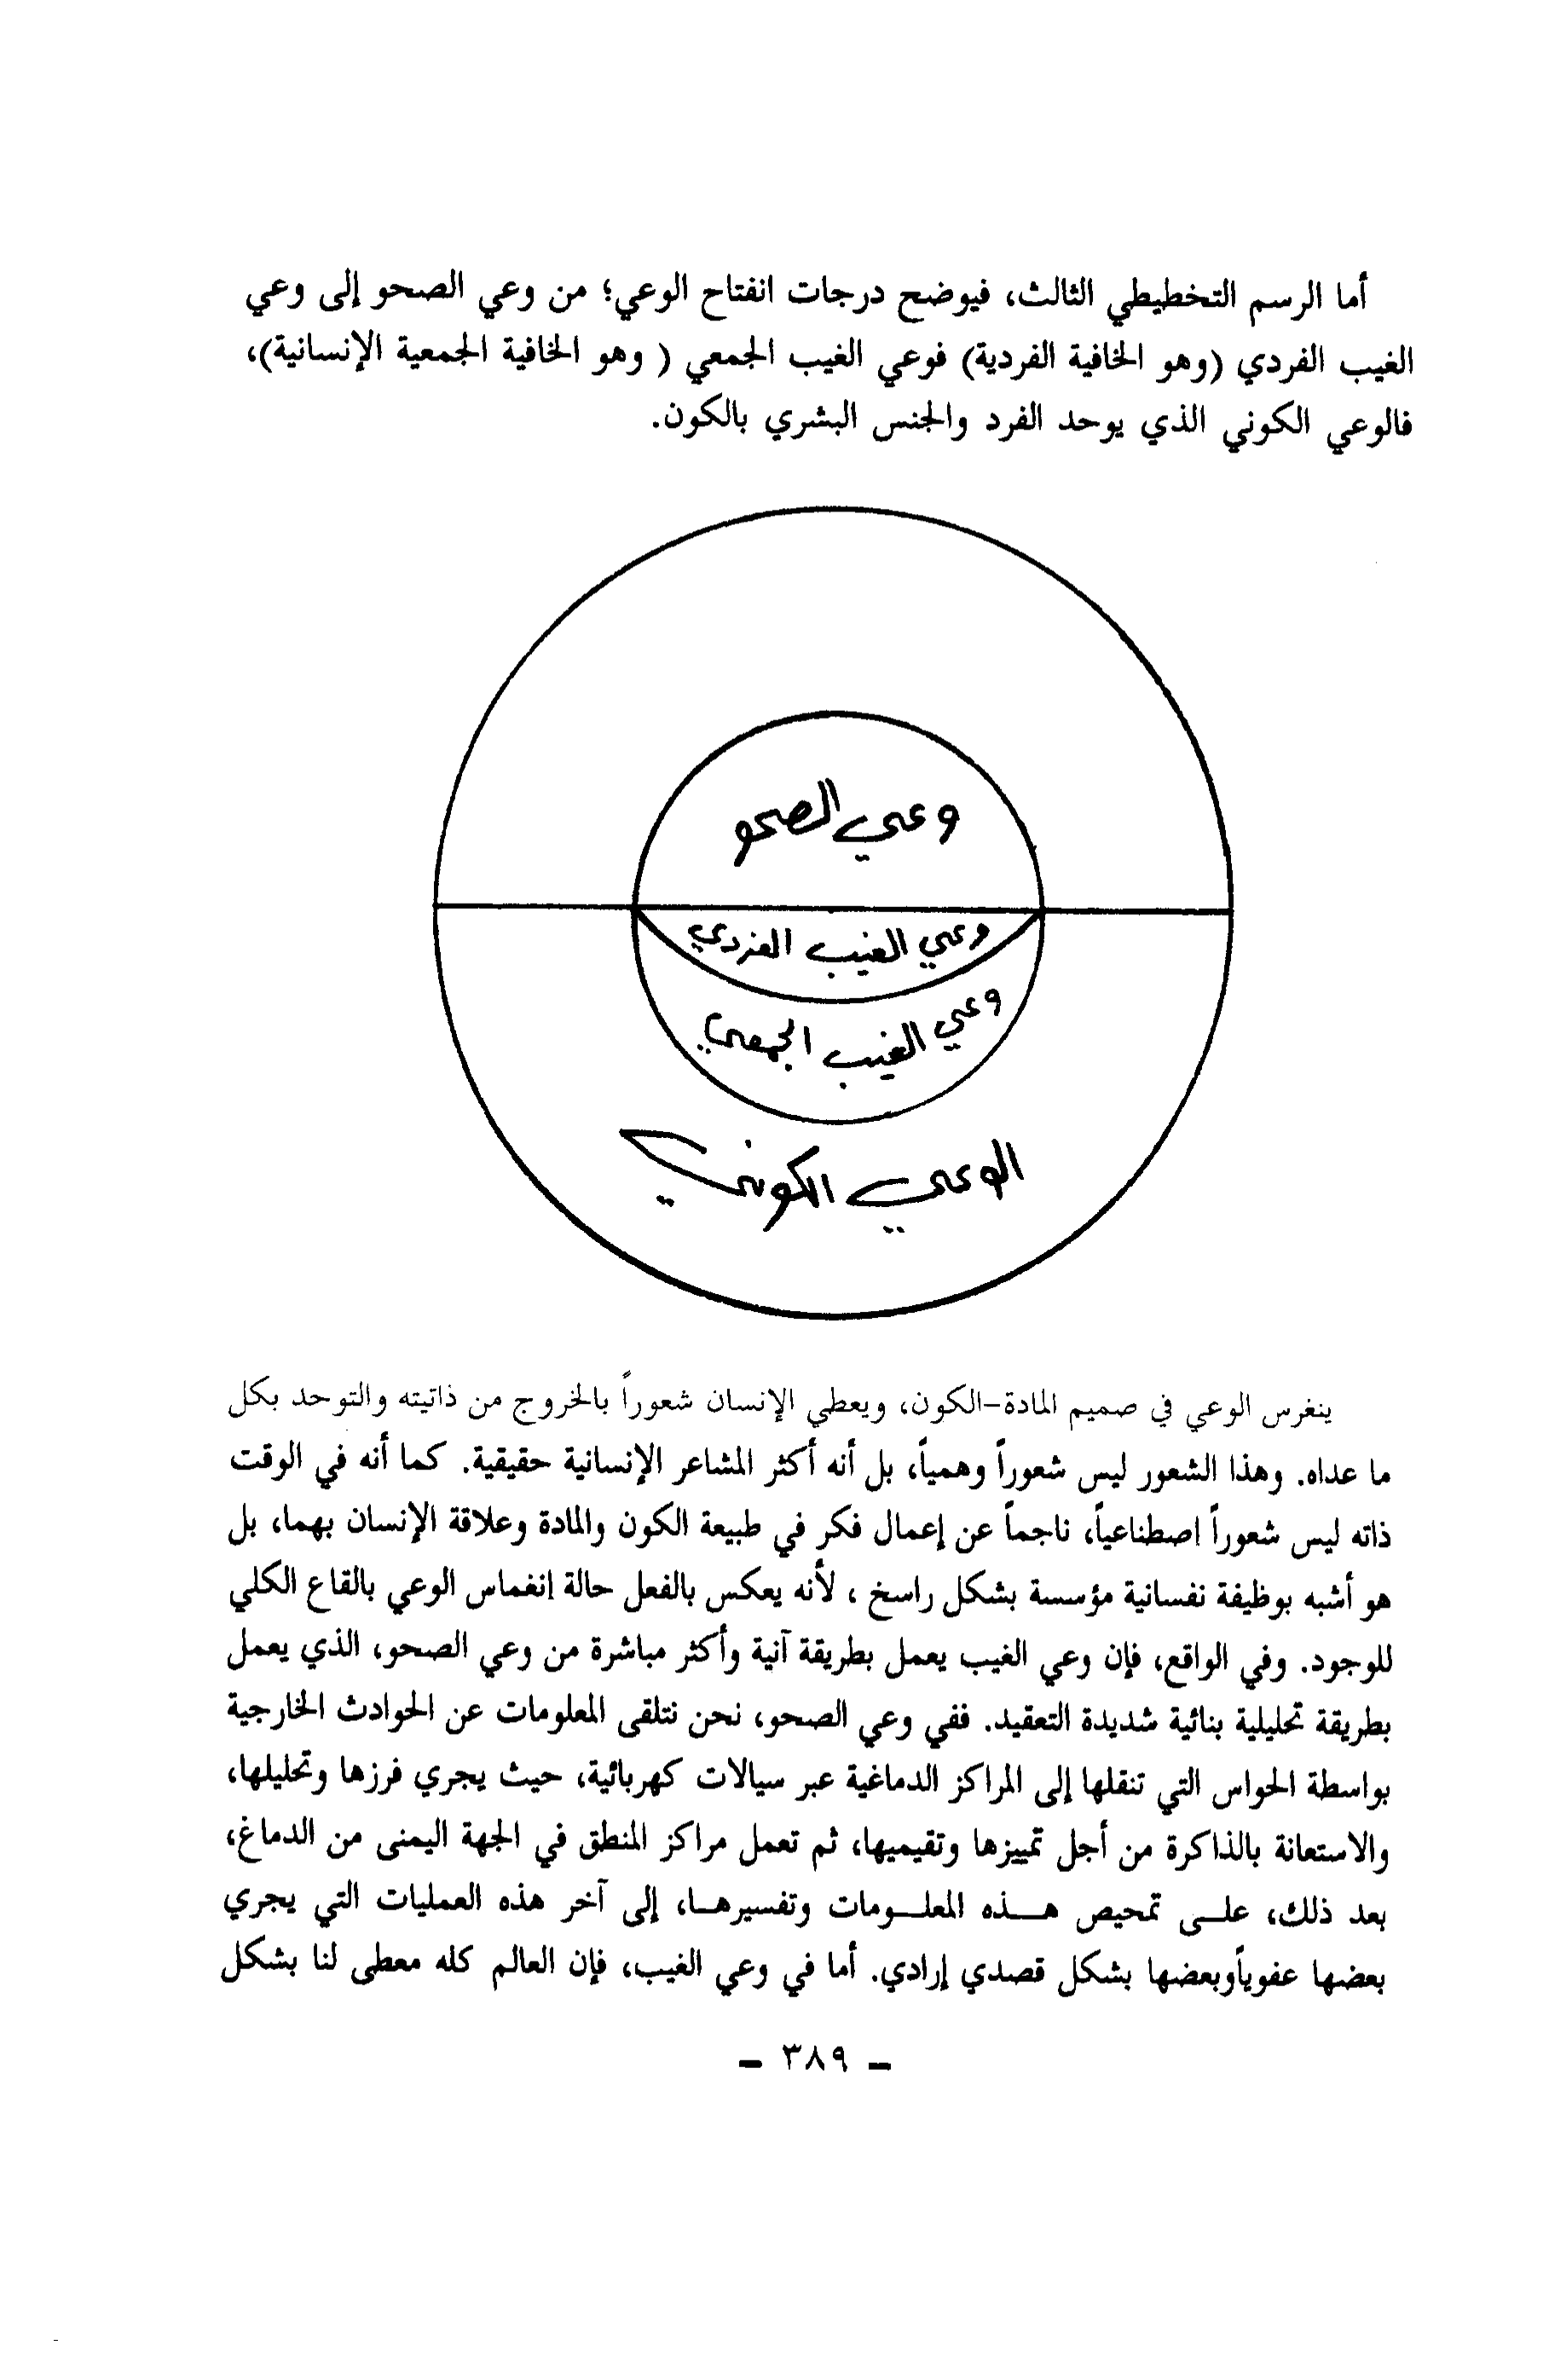 أما الرسم التخطيطي الثالث، فيوضح درجات انفتاح الوعي؛ من وعي الصحو إلى وعي
الغيب الفردي (وهو الخافية الفردية) فوعي الغيب الجمعي ( وهو الخافية الجمعية الإنسانية)،
فالوعي الكوني الذي يوحد الفرد والجنس البشري بالكون.
وعي الصحو
وعي الغيب الفردي
وعي الغيب الجمعي
الوعي الكوني
ينغرس الوعي في صميم المادة-الكون، ويعطي الإنسان شعوراً بالخروج من ذاتيته والتوحد بكل
ما عداه. وهذا الشعور ليس شعوراً وهمياً، بل أنه أكثر المشاعر الإنسانية حقيقية. كما أنه في الوقت
ذاته ليس شعوراً اصطناعياً، ناجماً عن إعمال فكر في طبيعة الكون والمادة وعلاقة الإنسان بهما، بل
هو أشبه بوظيفة نفسانية مؤسسة بشكل راسخ ، لأنه يعكس بالفعل حالة إنغماس الوعي بالقاع الكلي
للوجود. وفي الواقع، فإن وعي الغيب يعمل بطريقة آنية وأكثر مباشرة من وعي الصحو، الذي يعمل
بطريقة تحليلية بنائية شديدة التعقيد. ففي وعي الصحو، نحن نتلقى المعلومات عن الحوادث الخارجية
بواسطة الحواس التي تنقلها إلى المراكز الدماغية عبر سيالات كهربائية، حيث يجري فرزها وتحليلها،
والاستعانة بالذاكرة من أجل تمييزها وتقيميها، ثم تعمل مراكز المنطق في الجهة اليمنى من الدماغ،
بعد ذلك، علـى تمحيص هـــذه المعلـــومات وتفسيرهـا، إلى آخر هذه العمليات التي يجري
بعضها عفوياًوبعضها بشكل قصدي إرادي. أما في وعي الغيب، فإن العالم كله معطى لنا بشكل
- ٣٨٩ -